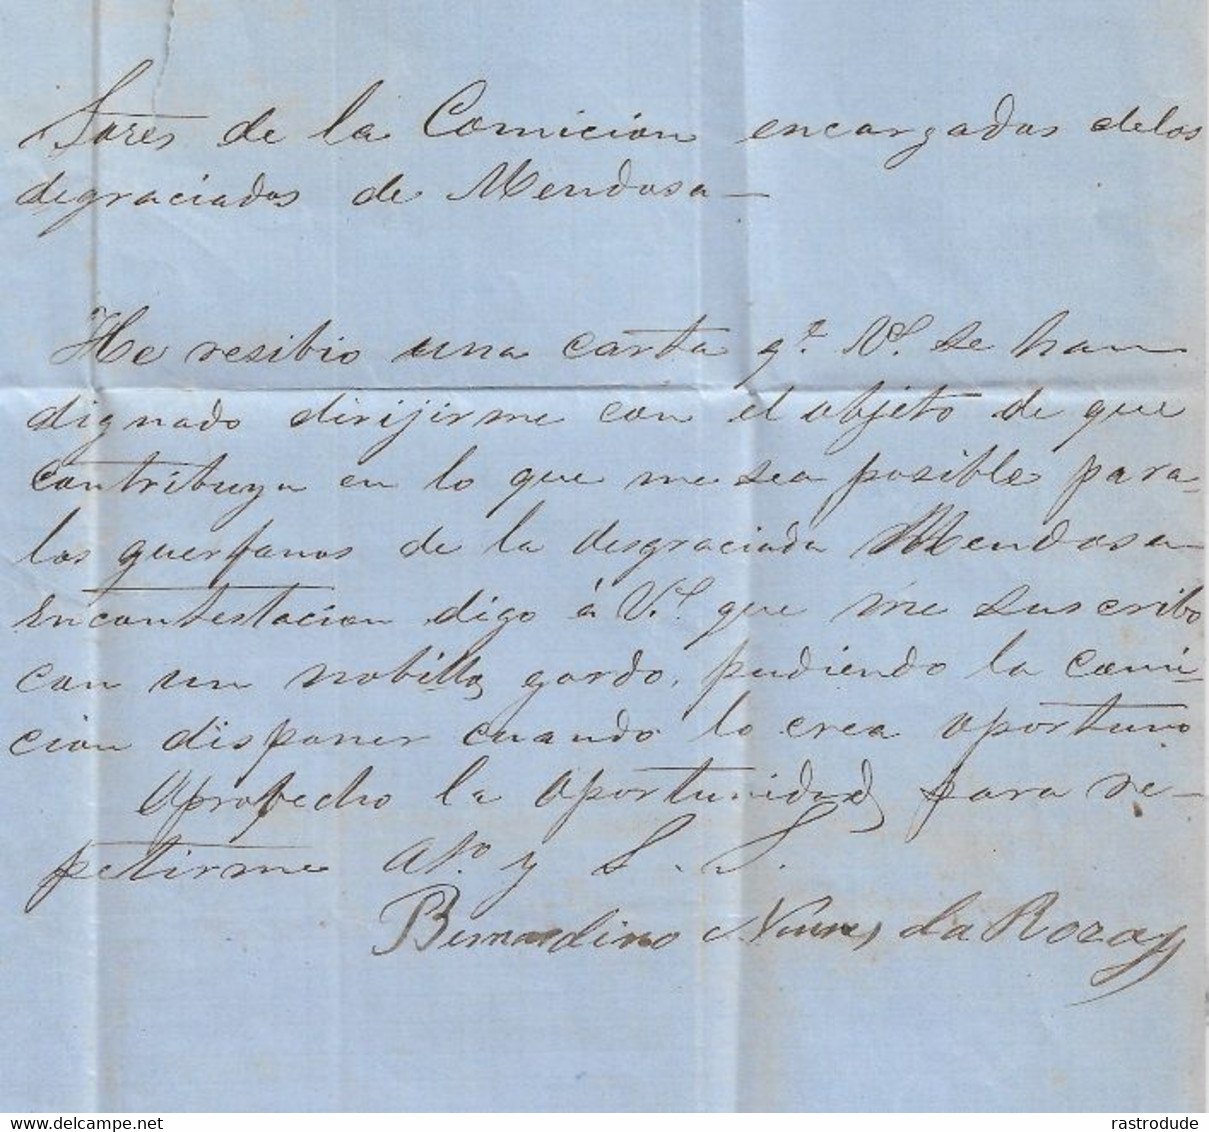 Sores de la Comicion encargadas delos
degraciados de Mendosa —
He resibio una carta qe Vs. se han
dignado dirijirme con el objeto de que
contribuya en lo que me sea posible para
los guerfanos de la desgraciada Mendosa
en contestacion digo á Vs. que me suscribo
con un nobillo gordo, pudiendo la comi-
cion disponer cuando lo crea oportuno
Aprobecho la oportunidad para re-
petirme Ato. y S. S.
Bernardino Nunes da Roza
www.delcampe.net
rastrodude